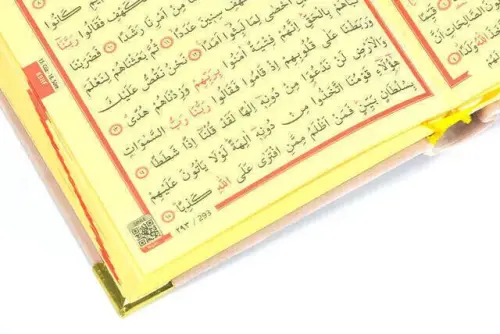 كَانُوا
كَهْفِ فَقَالُوا رَبَّنَا
مِنْ اَمْرِنَا رَشَدًا ﴿١٠﴾ فَضَرَبْنَا
كَهْفِ سِنِينَ عَدَدًا ﴿١١﴾ ثُمَّ بَعَثْنَاهُمْ لِنَعْلَمَ
اَحْصٰى لِمَا لَبِثُوا اَمَدًا ﴿١٢﴾ نَحْنُ نَقُصُّ عَلَيْكَ
نَبَاَهُمْ بِالْحَقِّ اِنَّهُمْ فِتْيَةٌ اٰمَنُوا بِرَبِّهِمْ وَزِدْنَاهُمْ هُدًى ﴿١٣﴾
وَرَبَطْنَا عَلٰى قُلُوبِهِمْ اِذْ قَامُوا فَقَالُوا رَبُّنَا رَبُّ السَّمٰوَاتِ
وَالْاَرْضِ لَنْ نَدْعُوَا مِنْ دُونِهٖ اِلٰهًا لَقَدْ قُلْنَا اِذًا شَطَطًا ﴿١٤﴾
هٰٓؤُلَاۤءِ قَوْمُنَا اتَّخَذُوا مِنْ دُونِهٖ اٰلِهَةً لَوْلَا يَأْتُونَ عَلَيْهِمْ
بِسُلْطَانٍ بَيِّنٍ فَمَنْ اَظْلَمُ مِمَّنِ افْتَرٰى عَلَى اللّٰهِ كَذِبًا ﴿١٥﴾
٢٩٣ / 293
قَيِّمًا
الصَّالِحَاتِ اَنَّ